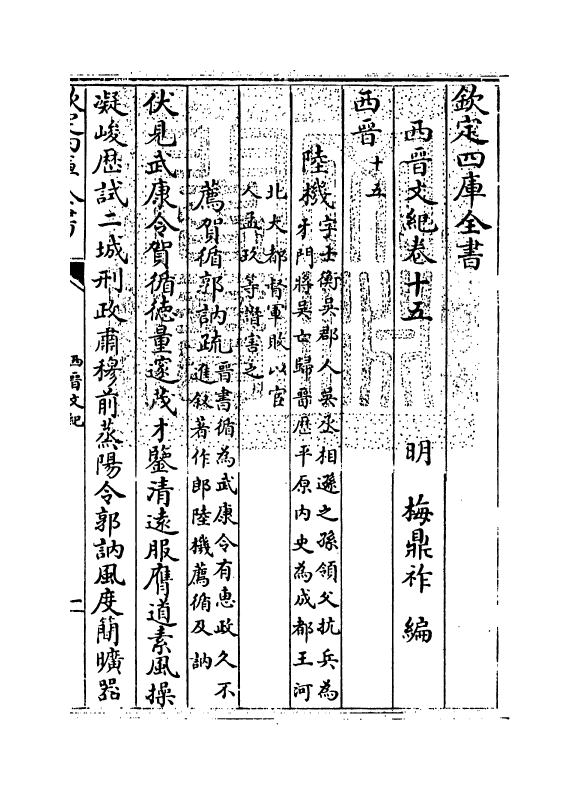 欽定四庫全書
西晉文紀卷十五
明 梅鼎祚 編
西晉十五
陸機字士衡吳郡人吳丞相遜之孫領父抗兵為
牙門將吳亡歸晉歷平原内史為成都王河
北大都督軍敗以宦
人孟玖等譖害之
薦賀循郭訥疏晉書循為武康令有惠政久不
進敘著作郎陸機薦循及訥
伏見武康令賀循德量邃茂才鑒清遠服膺道素風操
凝峻歷試二城刑政肅穆前蒸陽令郭訥風度簡曠器
欽定四庫全書
西晉文紀